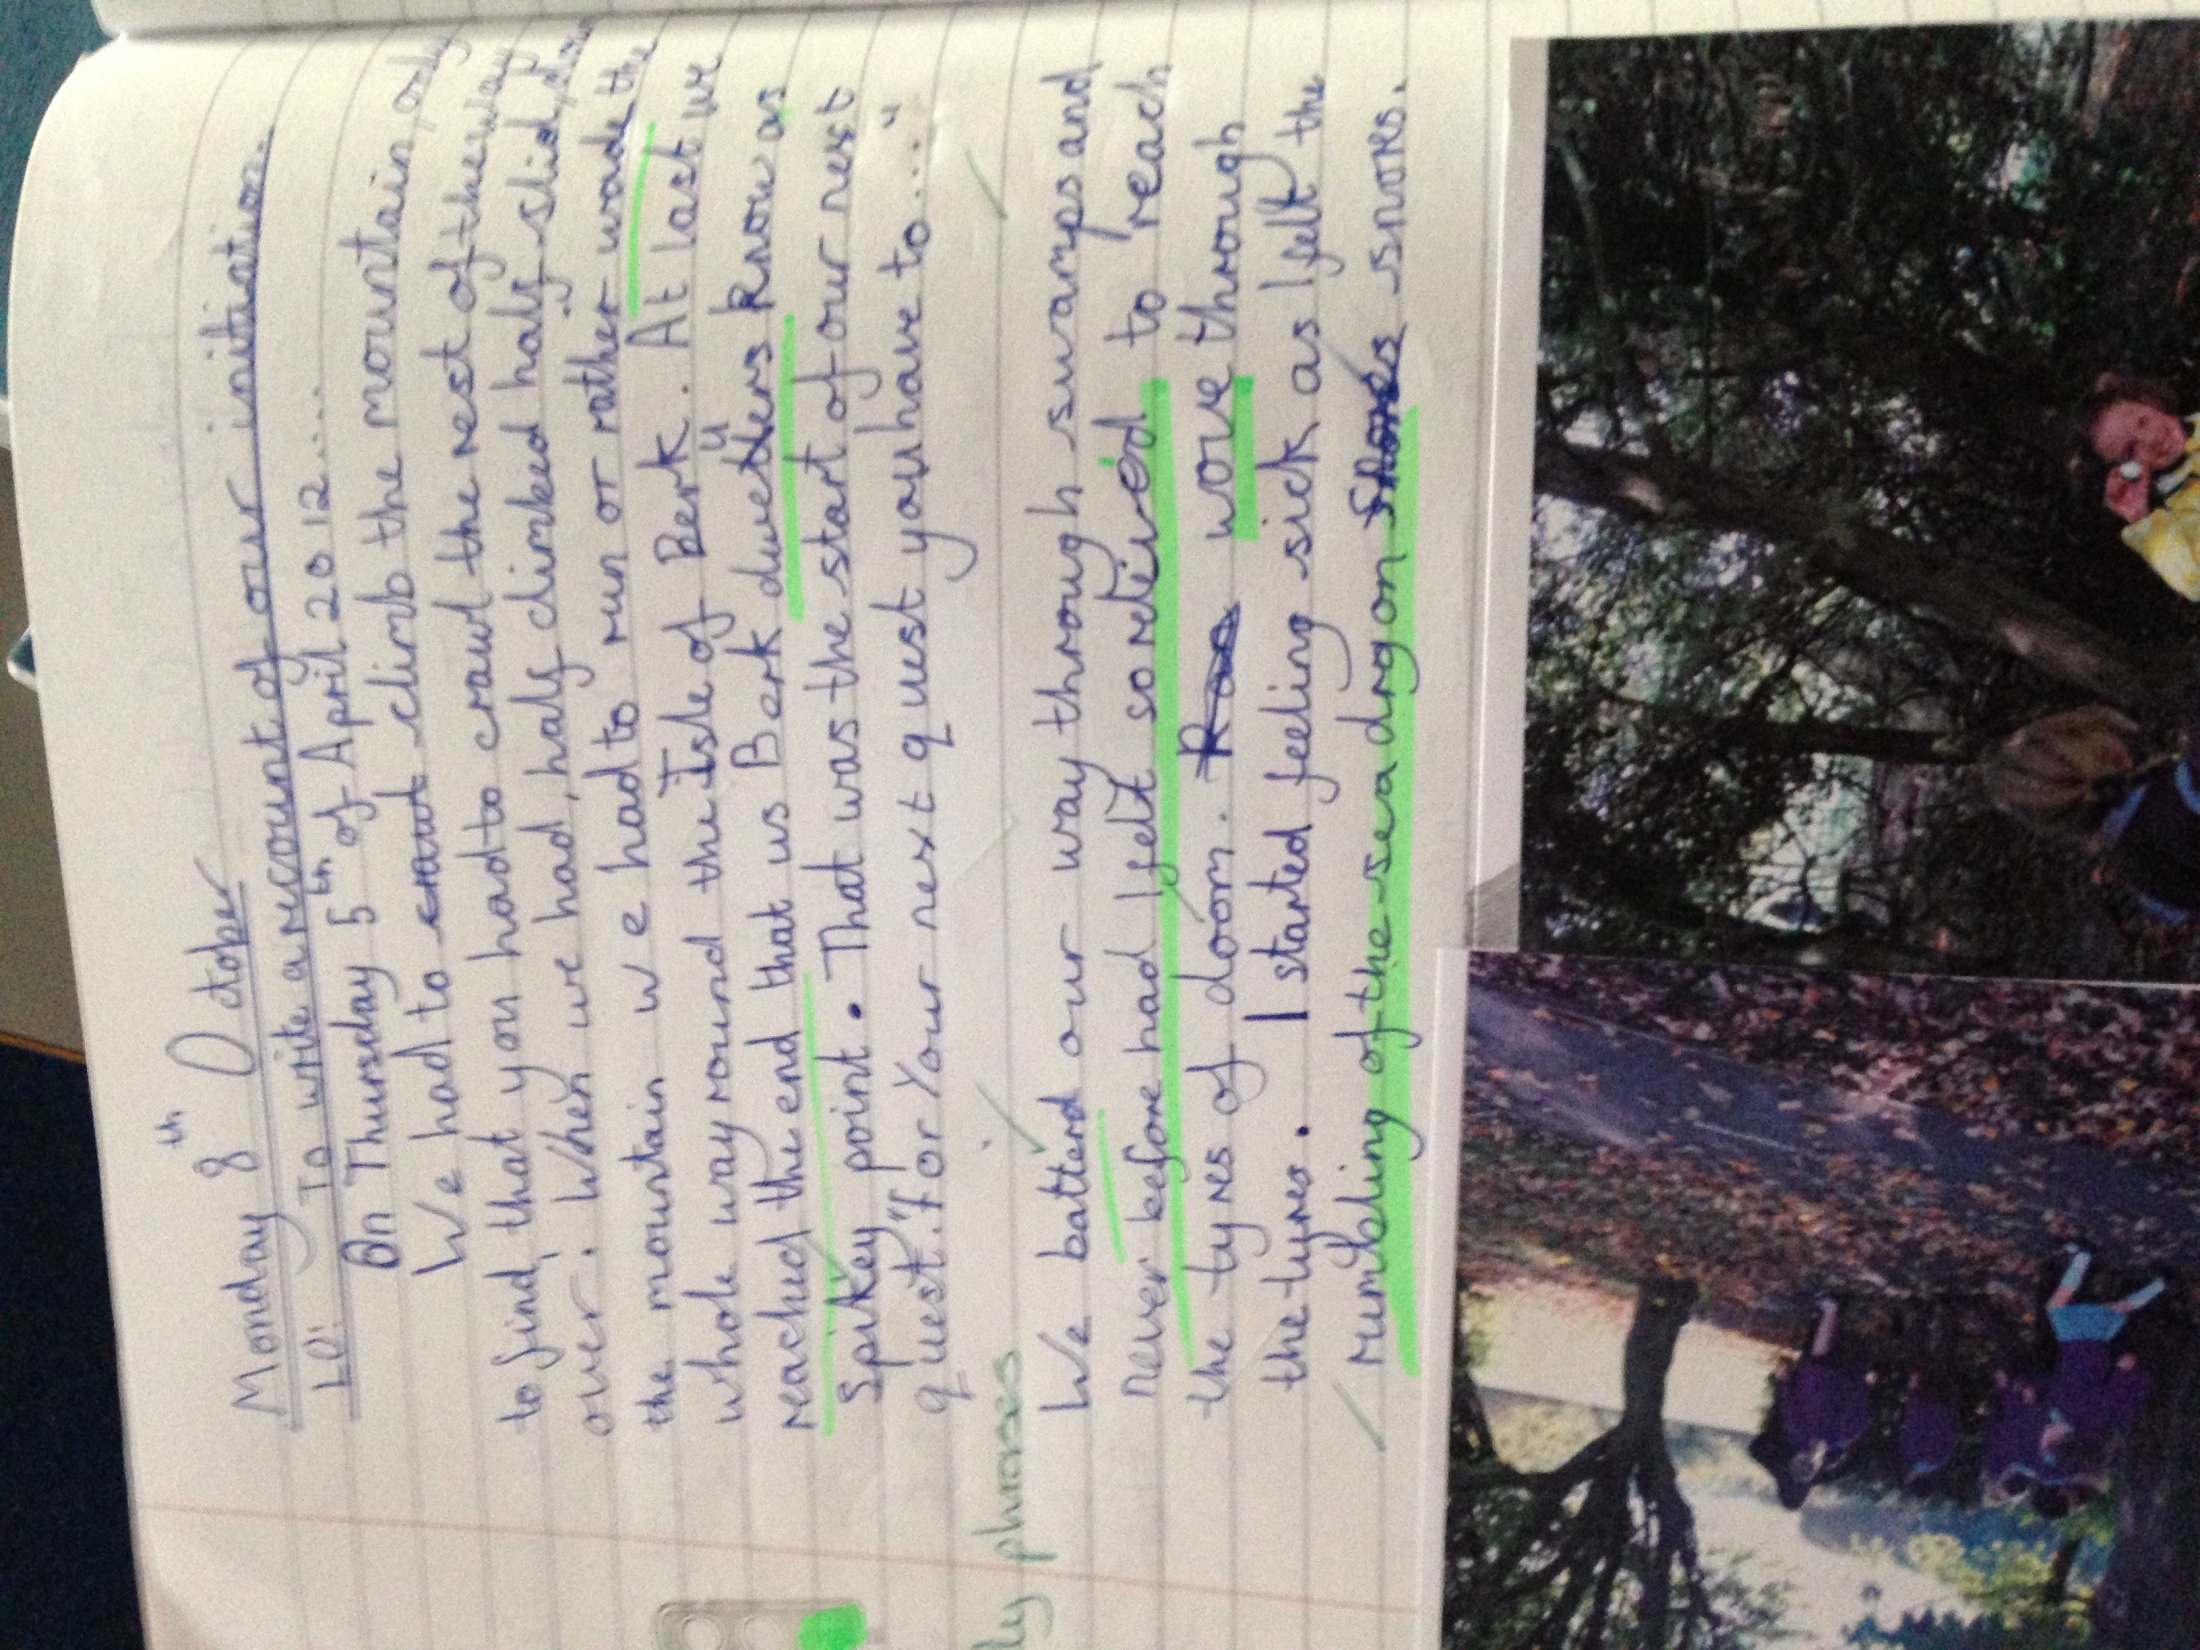 Monday 8th October
LO: To write a recount of our initiation.
On Thursday 5th of April 2012....
We had to crawl climb the mountain only
to find, that you had to crawl the rest of the way
over. When we had, half climbed half slid, down
the mountain we had to run or rather wade the
whole way round the Isle of Berk. At last we
reached the end that us Berk duellers know as
Spikey point. That was the start of our next
quest. "For Your next quest you have to...."
ly phrases
We batterd our way through swamps and
never before had I felt so releived to reach
the tyres of doom. Ran wove through
the tyres. I started feeling sick as I felt the
rumbling of the sea dragon snores.